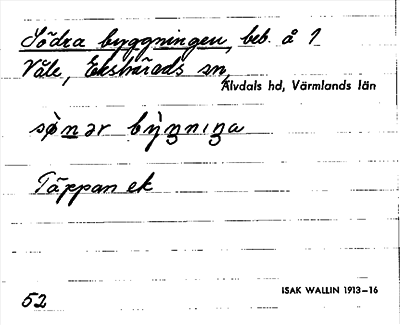 Södra byggningen, beb. å 1
Våle, Ekshärads sn,
Älvdals hd, Värmlands län
sö̀nər bỳgnıŋa
Täppan ek
52
ISAK WALLIN 1913–16